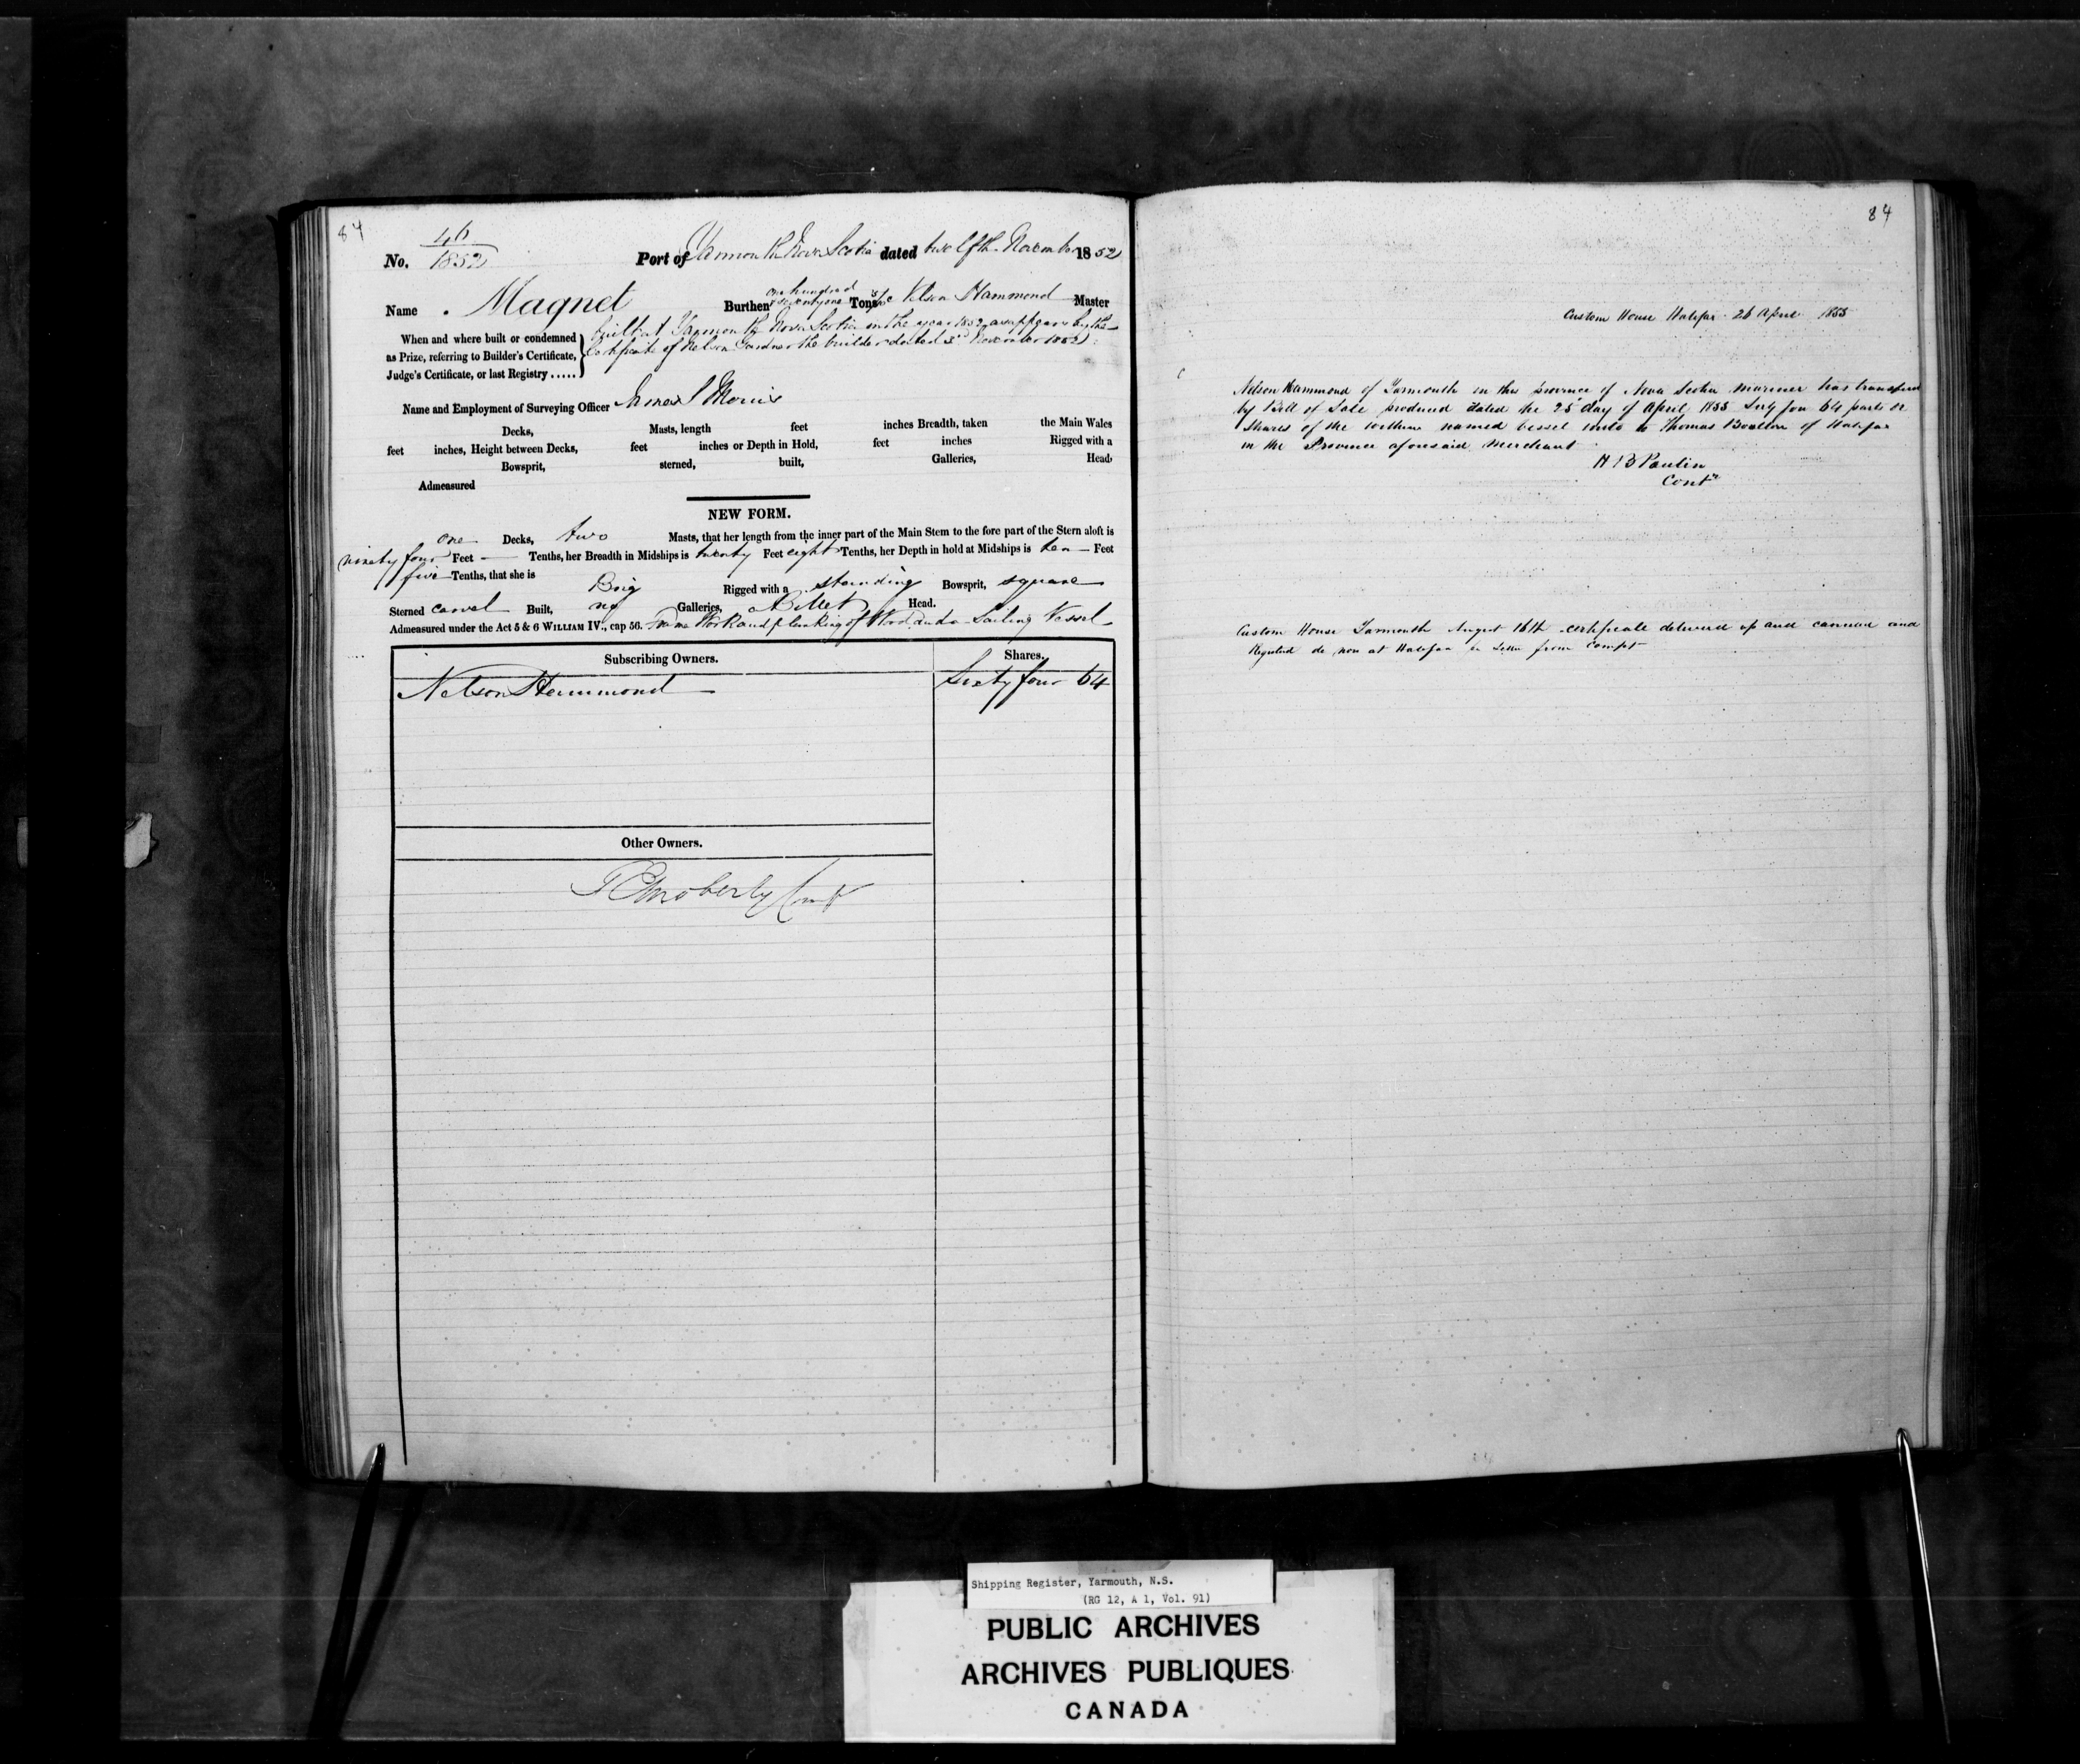 84
No. 46
1852
Port of Yarmouth Nova Scotia dated twelfth November 1852
Name Magnet Burthen one hundred & seventy one Tons Nelson Hammond Master
When and where built or condemned
as Prize, referring to Builder's Certificate,
Judge's Certificate, or last Registry .....
built at Yarmouth Nova Scotia in the year 1852 as appears by the
Certificate of Nelson Gardner the builder dated 3rd November 1852
Name and Employment of Surveying Officer James S Morris
Decks, Masts, length feet inches Breadth, taken the Main Wales
feet inches, Height between Decks, feet inches or Depth in Hold, feet inches Rigged with a
Bowsprit, sterned, built, Galleries, Head,
Admeasured
NEW FORM.
one Decks, two Masts, that her length from the inner part of the Main Stem to the fore part of the Stern aloft is
ninety four Feet — Tenths, her Breadth in Midships is twenty Feet eight Tenths, her Depth in hold at Midships is ten Feet
five Tenths, that she is Brig Rigged with a standing Bowsprit, square
Sterned carvel Built, no Galleries, Billet Head.
Admeasured under the Act 5 & 6 WILLIAM IV., cap 56. Frame Work and planking of Wood and a Sailing Vessel
Subscribing Owners. Shares.
Nelson Hammond Sixty four 64
Other Owners.
84
Custom House Halifax 26 April 1855
Nelson Hammond of Yarmouth in the province of Nova Scotia mariner has transferred
by Bill of Sale produced dated the 25 day of April 1855 Sixty four 64 parts or
Shares of the within named vessel unto Thomas Boulton of Halifax
in the Province aforesaid Merchant
H B Paulin
Contr
Custom House Yarmouth August 16th certificate delivered up and cancelled and
Registered de novo at Halifax Letter from Compt
Shipping Register, Yarmouth, N.S.
(RG 12, A 1, Vol. 91)
PUBLIC ARCHIVES
ARCHIVES PUBLIQUES
CANADA